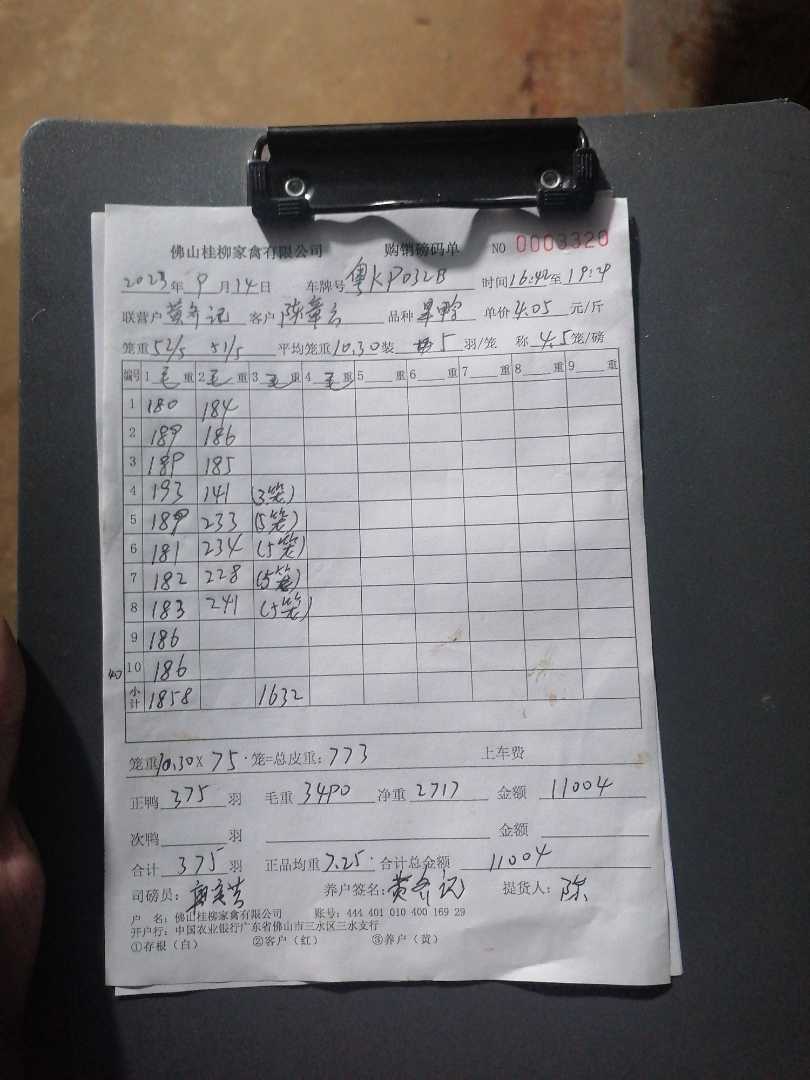 佛山桂柳家禽有限公司 购销磅码单 NO 0003320
2023年9月14日 车牌号 粤KP032B 时间16:42至19:29
联营户 黄年记 客户 陈 品种 单价 4.05 元/斤
笼重 52/5 51/5 平均笼重 10.30 装 5 羽/笼 称 4.5 笼/磅
编号 1 毛 重 2 毛 重 3 毛 重 4 毛 重 5 重 6 重 7 重 8 重 9 重
1 180 184
2 189 186
3 189 185
4 193 141 (3笼)
5 189 233 (5笼)
6 181 234 (5笼)
7 182 228 (5笼)
8 183 241 (5笼)
9 186
40 10 186
小计 1858 1632
笼重 10.30 X 75 笼=总皮重: 773 上车费
正鸭 375 羽 毛重 3490 净重 2717 金额 11004
次鸭 羽 金额
合计 375 羽 正品均重 7.25 合计总金额 11004
司磅员: 养户签名: 黄年记 提货人: 陈
户 名: 佛山桂柳家禽有限公司 账号: 444 401 010 400 169 29
开户行: 中国农业银行广东省佛山市三水区三水支行
①存根(白) ②客户(红) ③养户(黄)